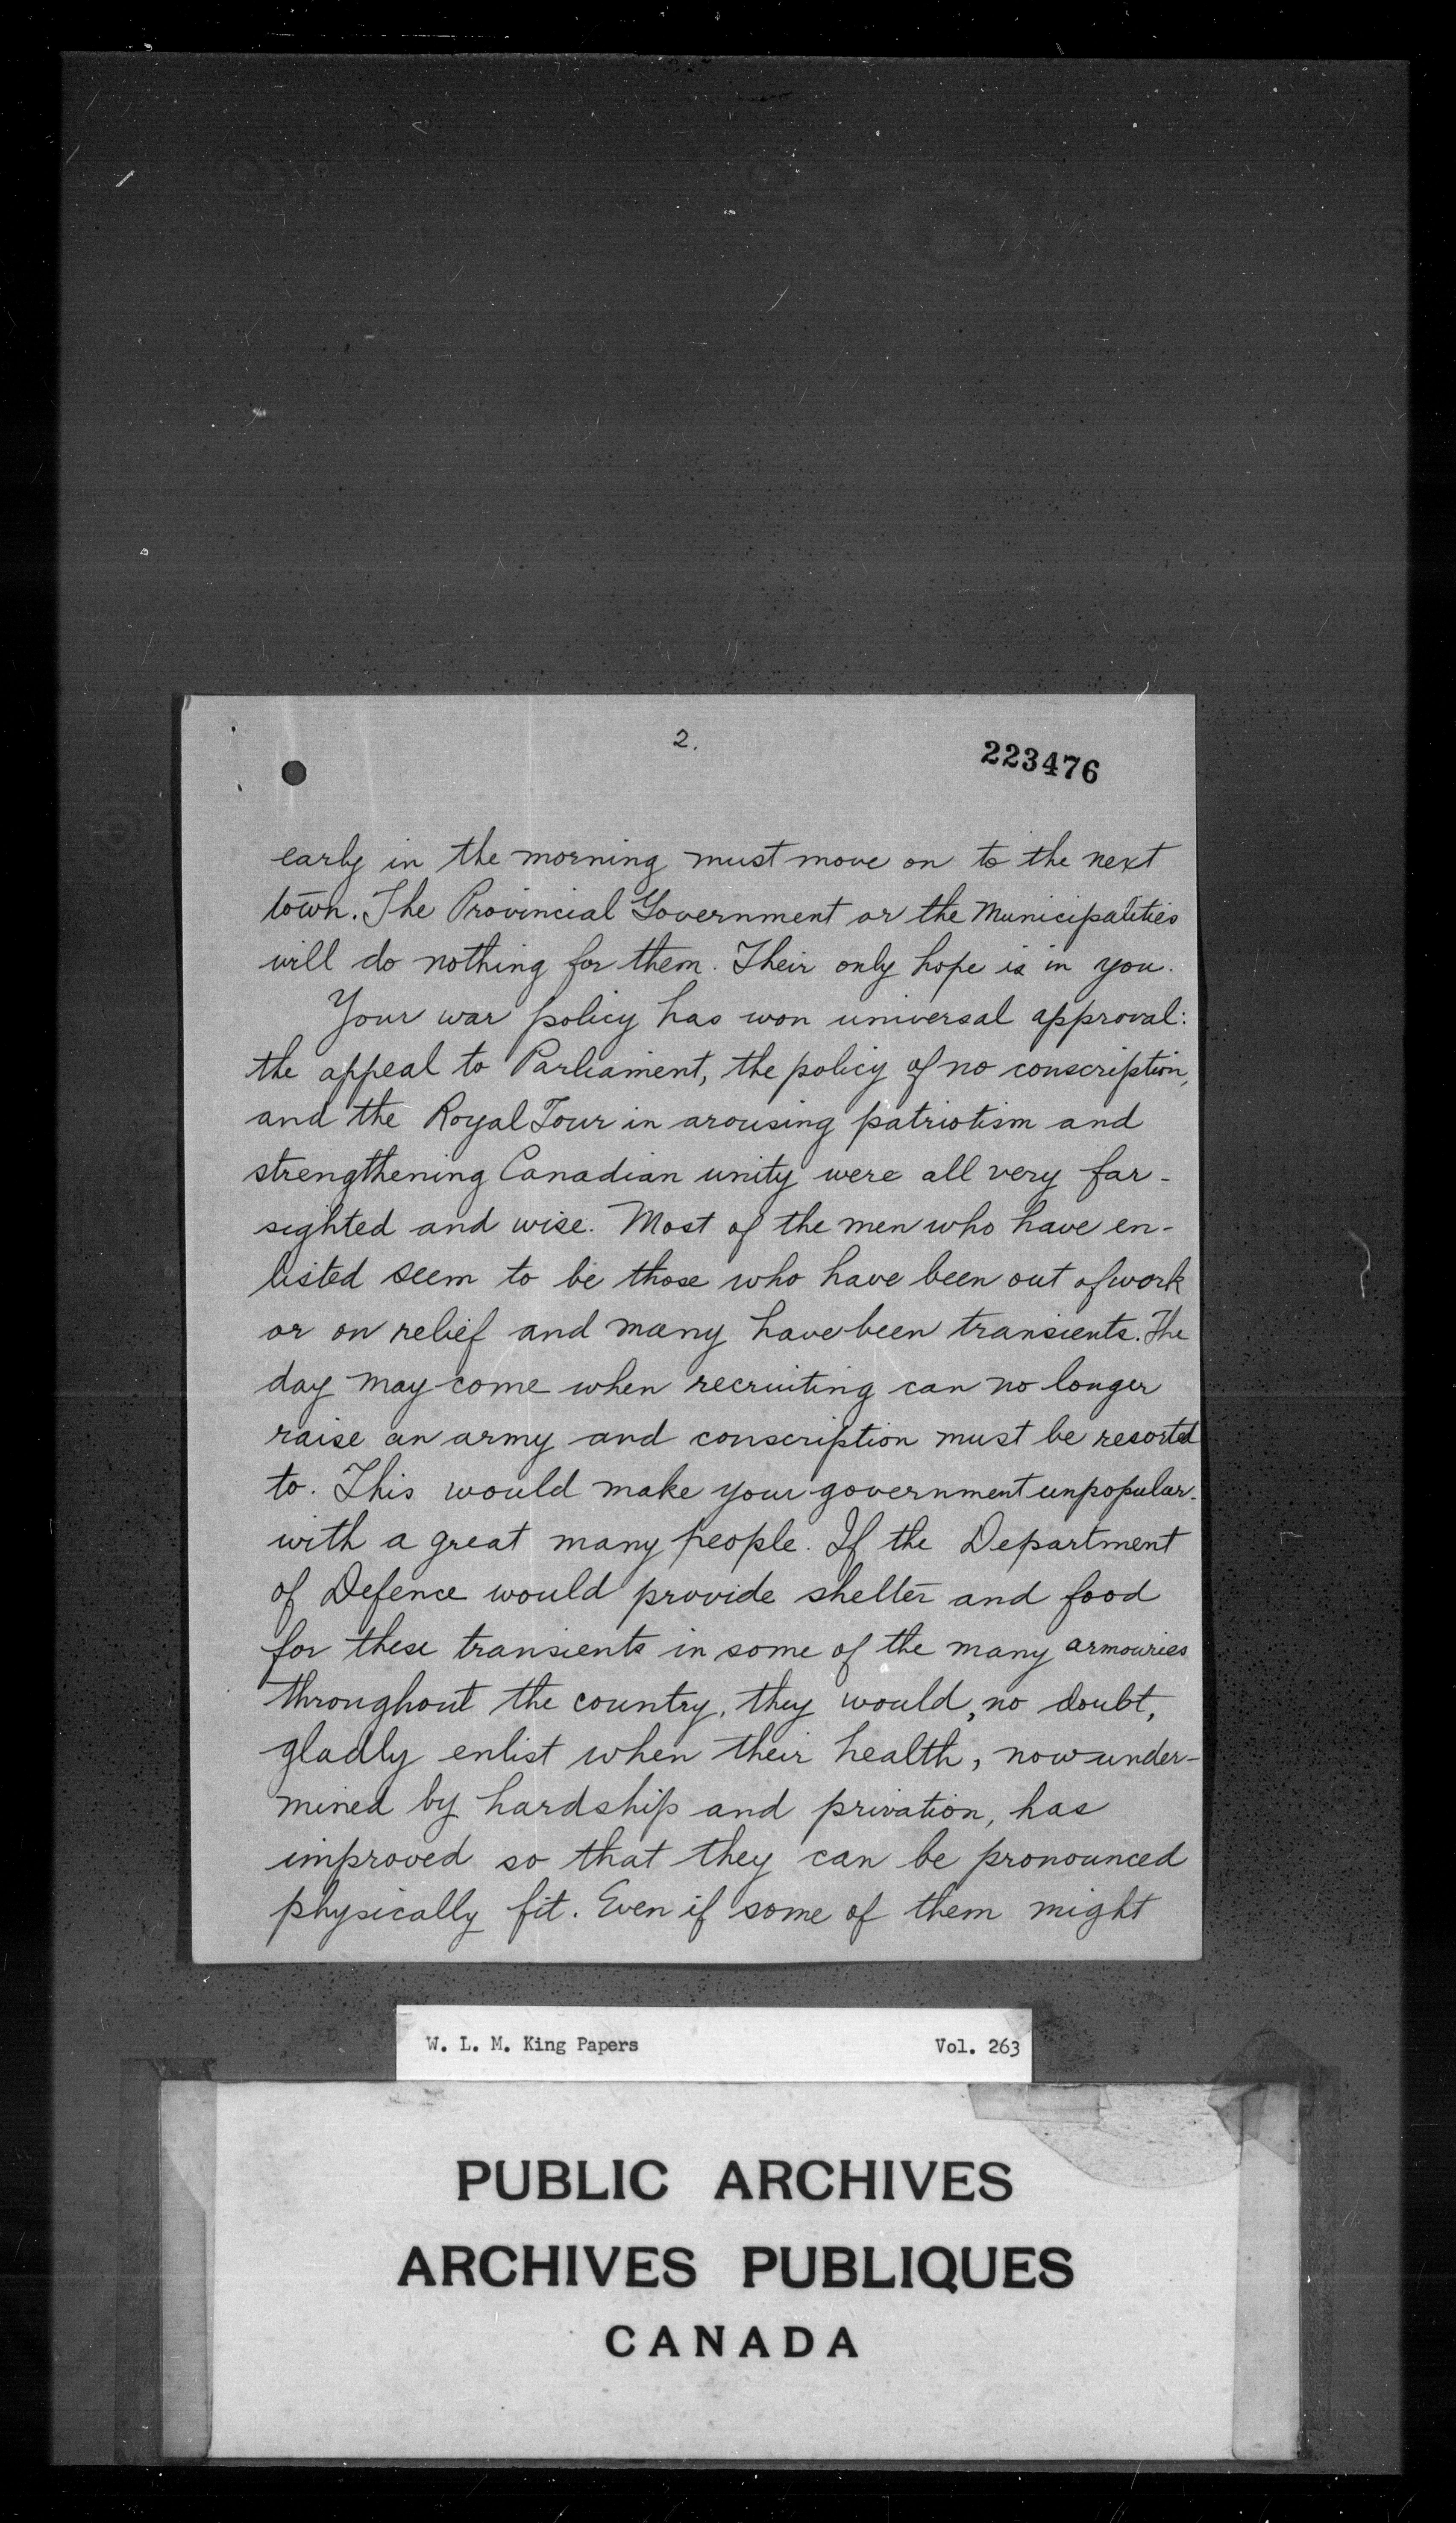 2.
223476
early in the morning must move on to the next
town. The Provincial Government or the Municipalities
will do nothing for them. Their only hope is in you.
Your war policy has won universal approval:
the appeal to Parliament, the policy of no conscription,
and the Royal Tour in arousing patriotism and
strengthening Canadian unity were all very far-
sighted and wise. Most of the men who have en-
listed seem to be those who have been out of work
or on relief and many have been transients. The
day may come when recruiting can no longer
raise an army and conscription must be resorted
to. This would make your government unpopular.
with a great many people. If the Department
of Defence would provide shelter and food
for these transients in some of the many armouries
throughout the country, they would, no doubt,
gladly enlist when their health, now under-
mined by hardship and privation, has
improved so that they can be pronounced
physically fit. Even if some of them might
W. L. M. King Papers Vol. 263
PUBLIC ARCHIVES
ARCHIVES PUBLIQUES
CANADA